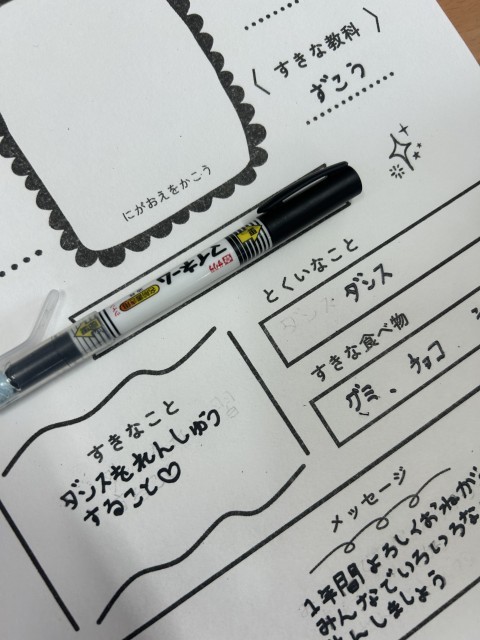 〈 すきな教科 〉
ずこう
にがおえをかこう
マイネーム
とくいなこと
ダンス
すきな食べ物
グミ、チョコ、
すきなこと
ダンスをれんしゅう
すること♡
メッセージ
1年間よろしくおねが
みんなでいろいろな
しましょう